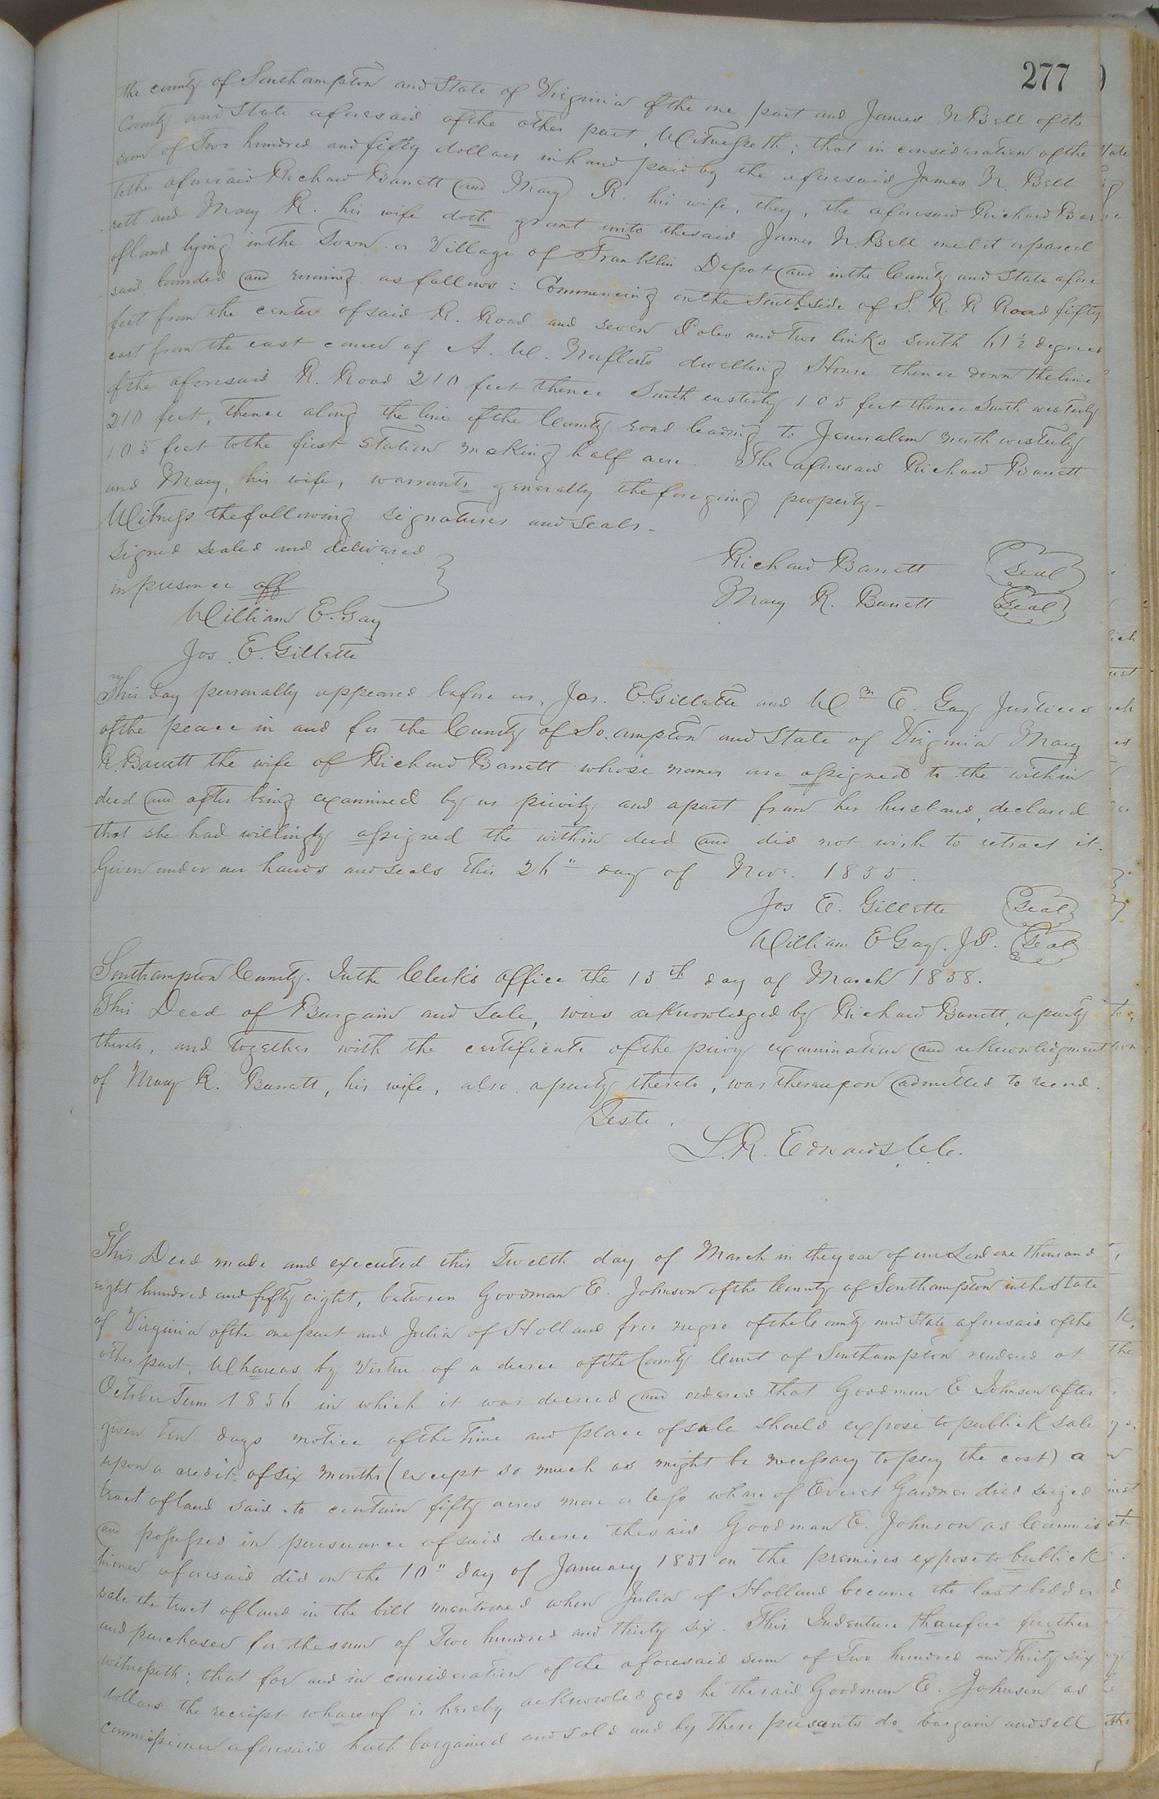 277
the county of Southampton and State of Virginia of the one part and James N Bell of the
County and State aforesaid of the other part, Witnesseth; that in consideration of the
sum of Two hundred and fifty dollars in hand paid by the aforesaid James N. Bell
to the aforesaid Richard Barrett and Mary R. his wife, they, the aforesaid Richard Bar
rett and Mary R. his wife doth grant unto the said James N Bell one lot or parcel
of land lying in the Town or Village of Franklin Depot and in the County and State afore
said bounded and running as follows: Commencing on the South side of S. R. R Road fifty
feet from the centre of said R. Road and seven Poles and two links South 61½ degrees
east from the east corner of A. W. Norfleets dwelling House thence down the line
of the aforesaid R. Road 210 feet thence South easterly 105 feet thence South westerly
210 feet, thence along the line of the County road leading to Jerusalem north westerly
105 feet to the first station making half acre. The aforesaid Richard Barrett
and Mary, his wife, warrants generally the foregoing property—
Witness the following signatures and seals—
Signed sealed and delivered
in presence off
Richard Barrett Seal
Mary R. Barrett Seal
William E. Gay
Jos. E. Gillette
This day personally appeared before us, Jos. E. Gillette and Wm E. Gay Justices
of the peace in and for the County of So.ampton and State of Virginia Mary
R. Barrett the wife of Richard Barrett whose names are assigned to the within
deed and after being examined by us privity and apart from her husband, declared
that she had willingly assigned the within deed and did not wish to retract it.
Given under our hands and seals this 26" day of Nov. 1855.
Jos E. Gillette Seal
William E Gay. J.P. Seal
Southampton County. In the Clerk's office the 15th day of March 1858.
This Deed of Bargain and Sale, was acknowledged by Richard Barrett, a party
thereto, and together with the certificate of the privy examination and acknowledgment
of Mary R. Barrett, his wife, also a party thereto, was thereupon admitted to record.
Teste.
L. R. Edwards, C.C.
This Deed made and executed this Twelth day of March in the year of our Lord one thousand
eight hundred and fifty eight, between Goodman E. Johnson of the County of Southampton in the State
of Virginia of the one part and Julia of Holland free negro of the County and State aforesaid of the
other part, Whareas by Virtue of a decree of the County Court of Southampton rendered at
October Term 1856 in which it was decreed and ordered that Goodman E Johnson after
given ten days notice of the Time and place of sale should expose to publick sale
upon a credit of six months (except so much as might be necessary to pay the cost) a
tract of land said to contain fifty acres more or less whare of Everet Gardner died seized
and possessed in pursuance of said decree the said Goodman E. Johnson as Commis
sioner aforesaid did on the 10" day of January 1857 on the premises expose to bublick
sale the tract of land in the bill mentioned when Julia of Holland became the last bidder
and purchaser for the sum of Two hundred and thirty six. This Indenture tharefore further
witnesseth; that for and in consideration of the aforesaid sum of Two hundred and Thirty six
dollars the receipt whareof is hereby acknowledged he the said Goodman E. Johnson as
commissioner aforesaid hath bargained and sold and by these presants do bargain and sell